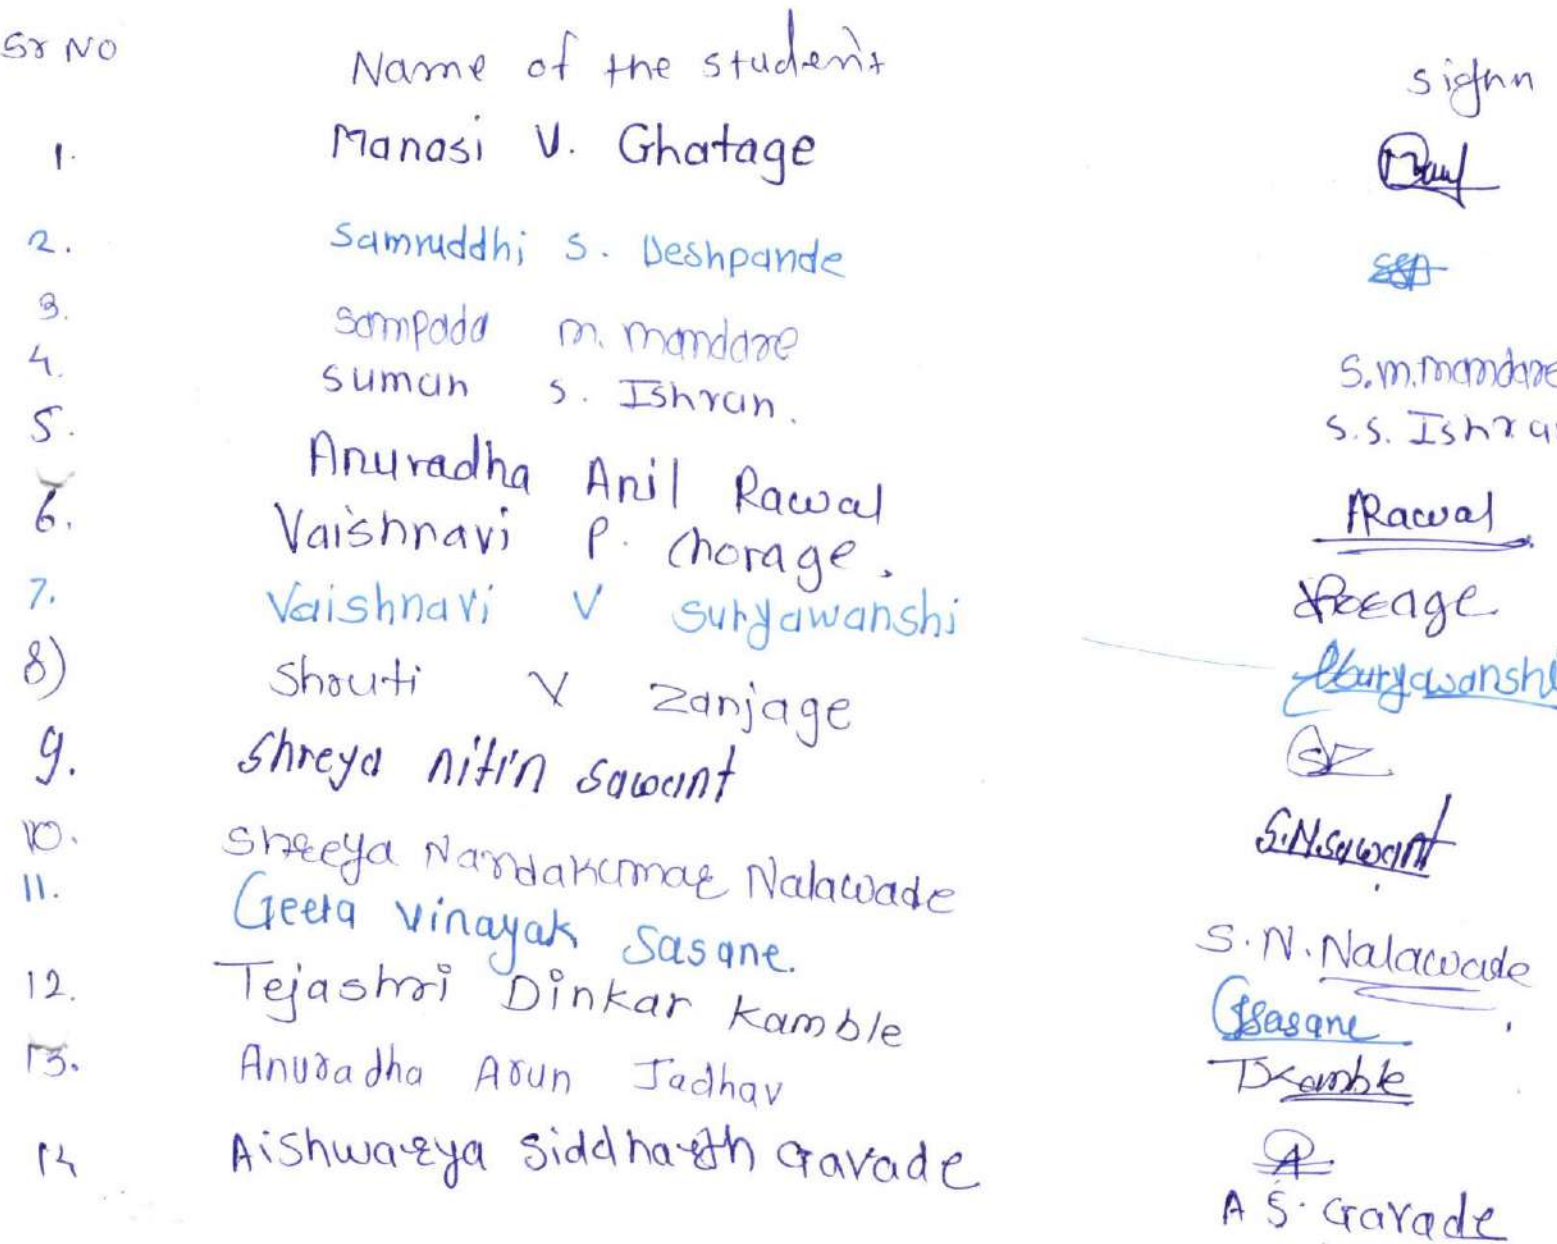 Sr NO Name of the student signn
1. Manasi V. Ghatage
2. Samruddhi S. Deshpande
3. Sampada m. mandare S.m.mandare
4. Suman S. Ishran. S.S. Ishra
5. Anuradha Anil Rawal ARawal
6. Vaishnavi P. Chorage.
7. Vaishnavi V Suryawanshi Suryawanshi
8) Shruti V Zanjage SZ
9. Shreya nitin Sawant S.N.sawant
10. Shreeya Nandakumar Nalawade S.N.Nalawade
11. Geeta Vinayak Sasane. GSasane
12. Tejashri Dinkar Kamble TKamble
13. Anuradha Arun Jadhav
14 Aishwarya Siddharth Gavade A S. Gavade